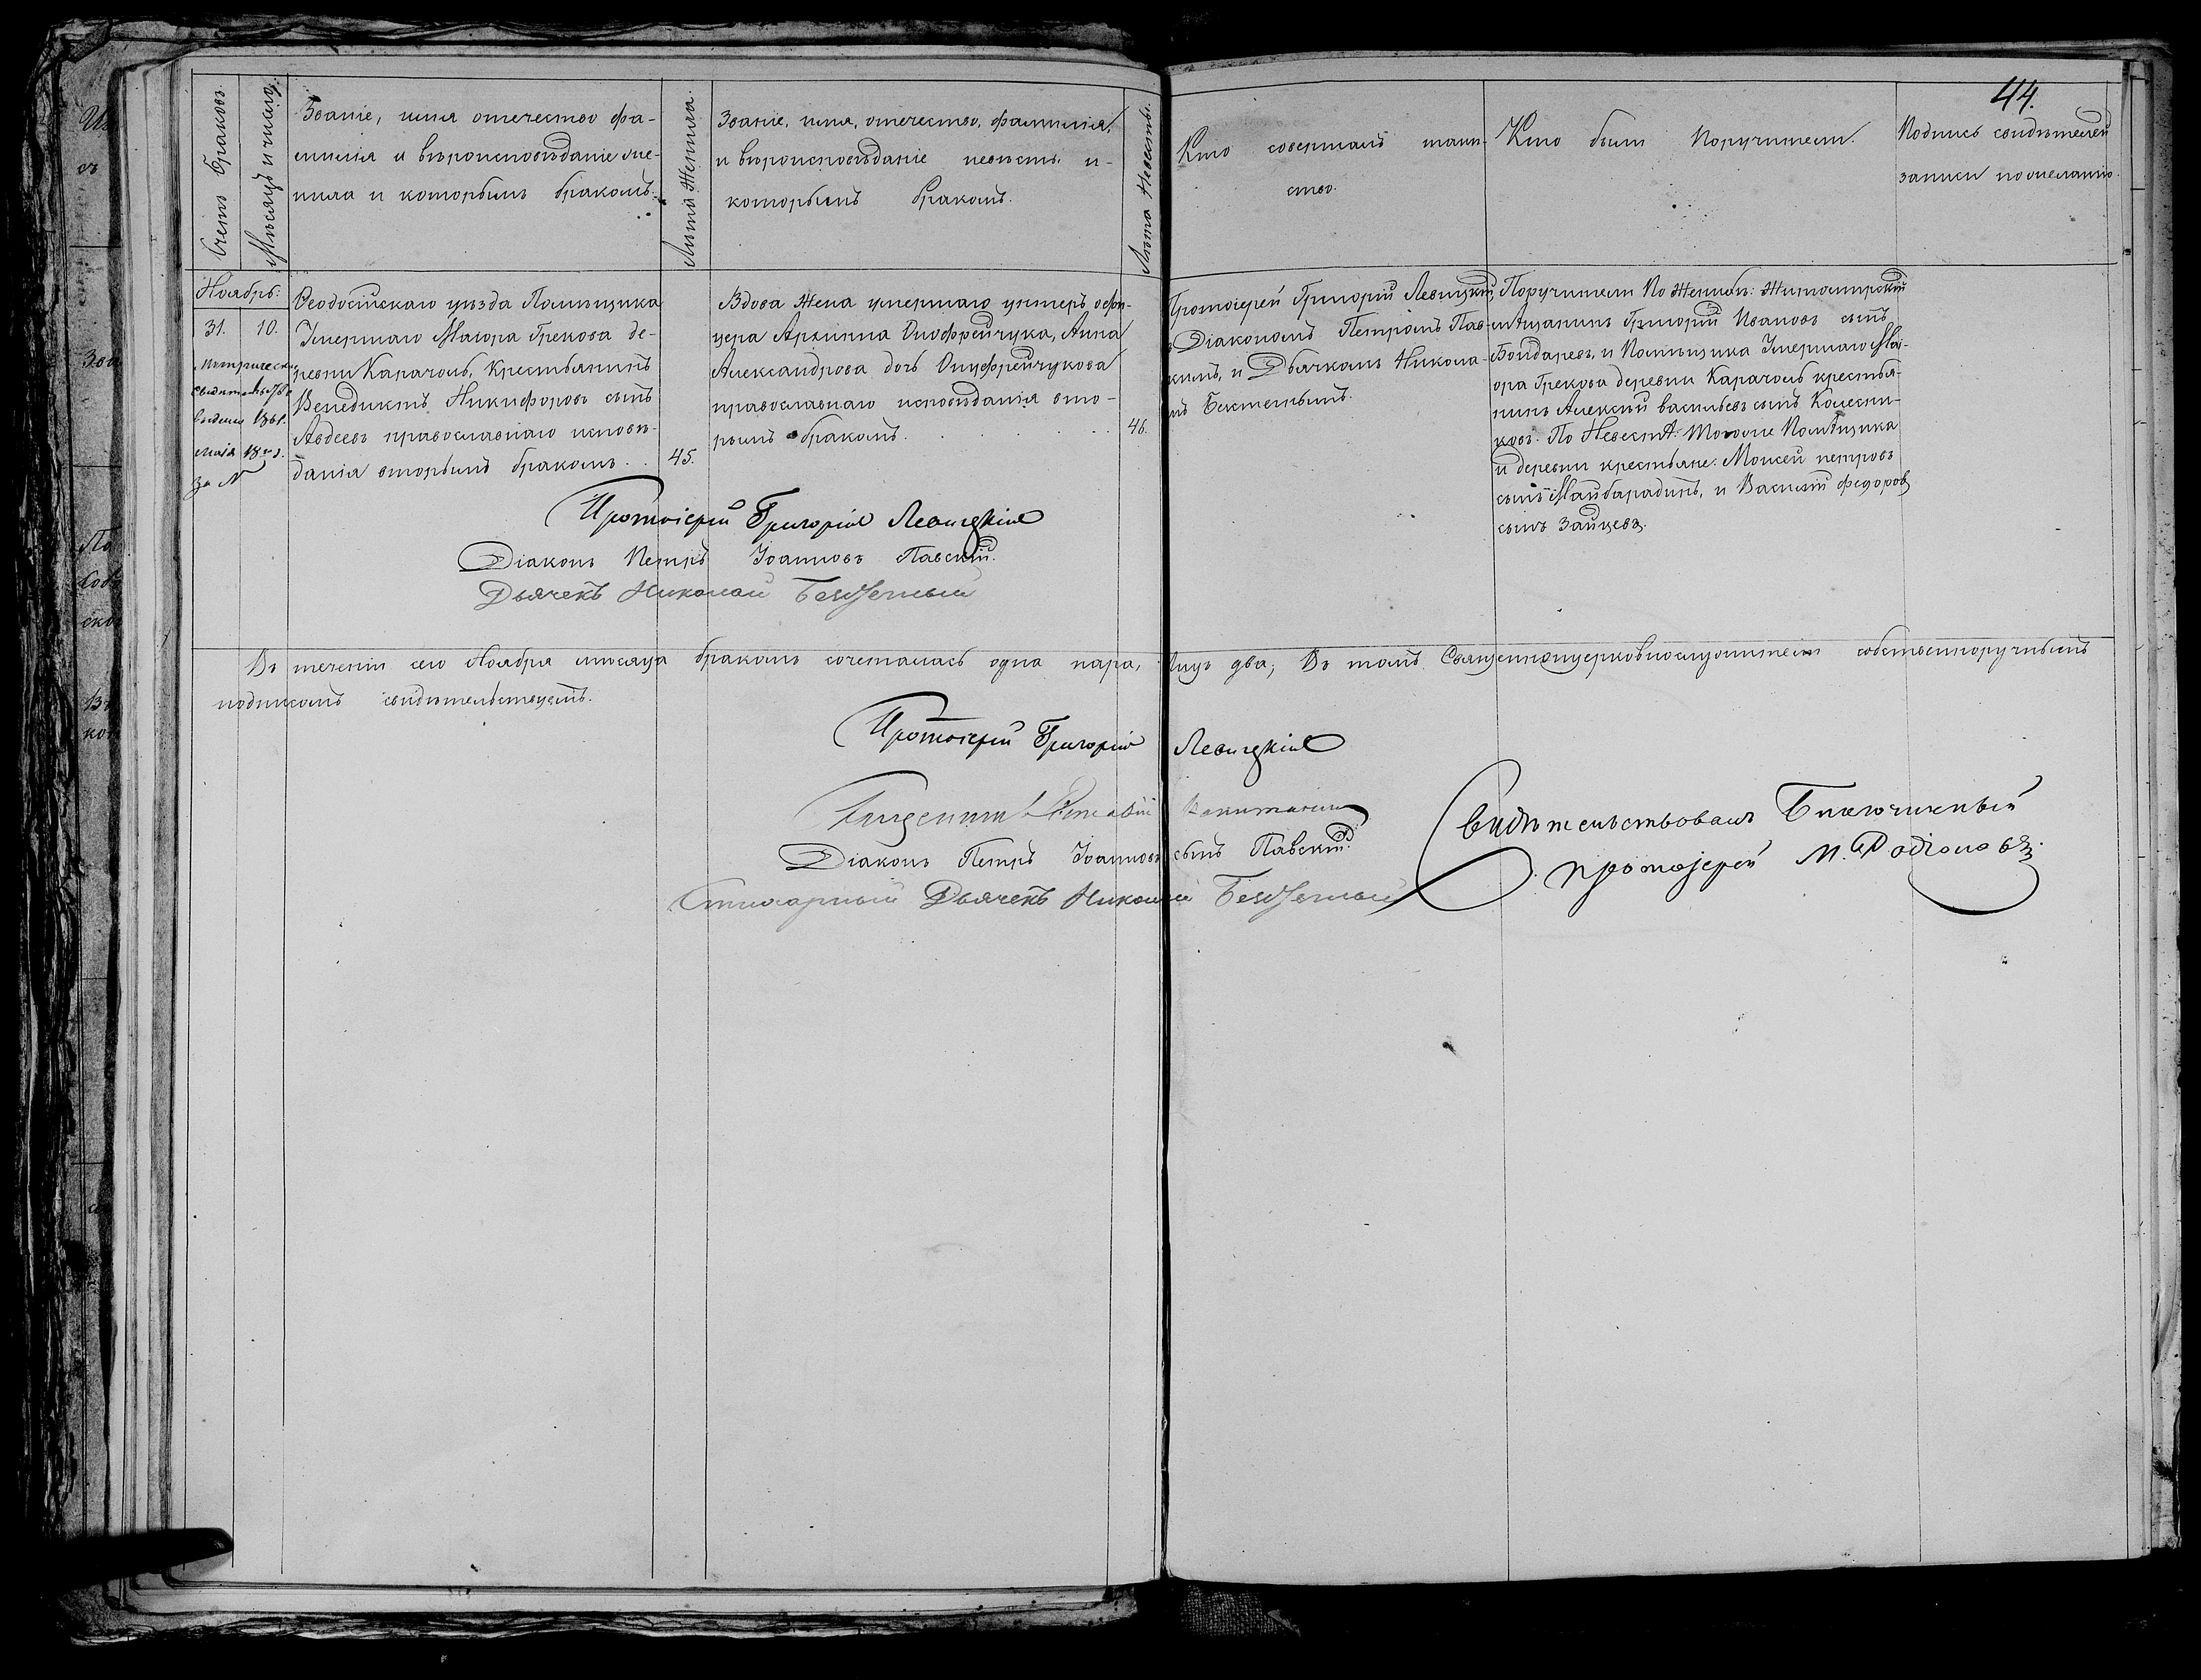 44.
Счетъ браковъ.
Мѣсяцъ и число.
Званіе, имя отечество фа-
милія и вѣроисповѣданіе же-
ниха и которымъ бракомъ.
Лѣта Жениха.
Званіе, имя, отечество, фамилія,
и вѣроисповѣданіе невѣсты и
которымъ бракомъ.
Лѣта Невѣсты.
Кто совершалъ таин-
ство.
Кто были Поручители.
Подпись свидѣтелей
записи по желанію.
Ноябрь:
31. 10.
Метрическ.
за N
Ѳеодосійскаго уѣзда Помѣщика
Умершаго Маіора Грекова де-
ревни Карачоль, Крестьянинъ
Венедиктъ Никифоровъ сынъ
Авдеевъ православнаго исповѣ-
данія вторымъ бракомъ. 45.
Вдова Жена умершаго унтеръ офи-
цера Архиппа Онофрейчука, Анна
Александрова дочь Онуфрейчукова
православнаго исповѣданія вто-
рымъ бракомъ. 46.
Протоіерей Григорій Левицкій,
съ Діакономъ Петромъ Пав-
скимъ, и Дьячкомъ Никола-
емъ
Поручители По Женихѣ: Житомирскій
мѣщанинъ Григорій Ивановъ сынъ
Бондаревъ, и Помѣщика Умершаго Маі-
ора Грекова деревни Карачоль крестья-
нинъ Алексѣй васильевъ сынъ Колесни-
ковъ. По Невестѣ: Тогоже Помѣщика
и деревни крестьяне: Моисей петровъ
сынъ и Василій федоровъ
сынъ Зайцевъ.
Протоіерей Григорій Левицкій
Діаконъ Петръ Іоанновъ Павскій.
Дьячекъ Николай
Въ теченіи сего Ноября мѣсяца бракомъ сочеталась одна пара, лицъ два; Въ томъ Священноцерковнослужители собственноручнымъ
подписомъ свидѣтельствуемъ.
Протоіерей Григорій Левицкій
Діаконъ Петръ Іоанновъ сынъ Павскій.
Дьячекъ Николай
Свидѣтельствовалъ Благочинный
протоіерей М. Родіоновъ.